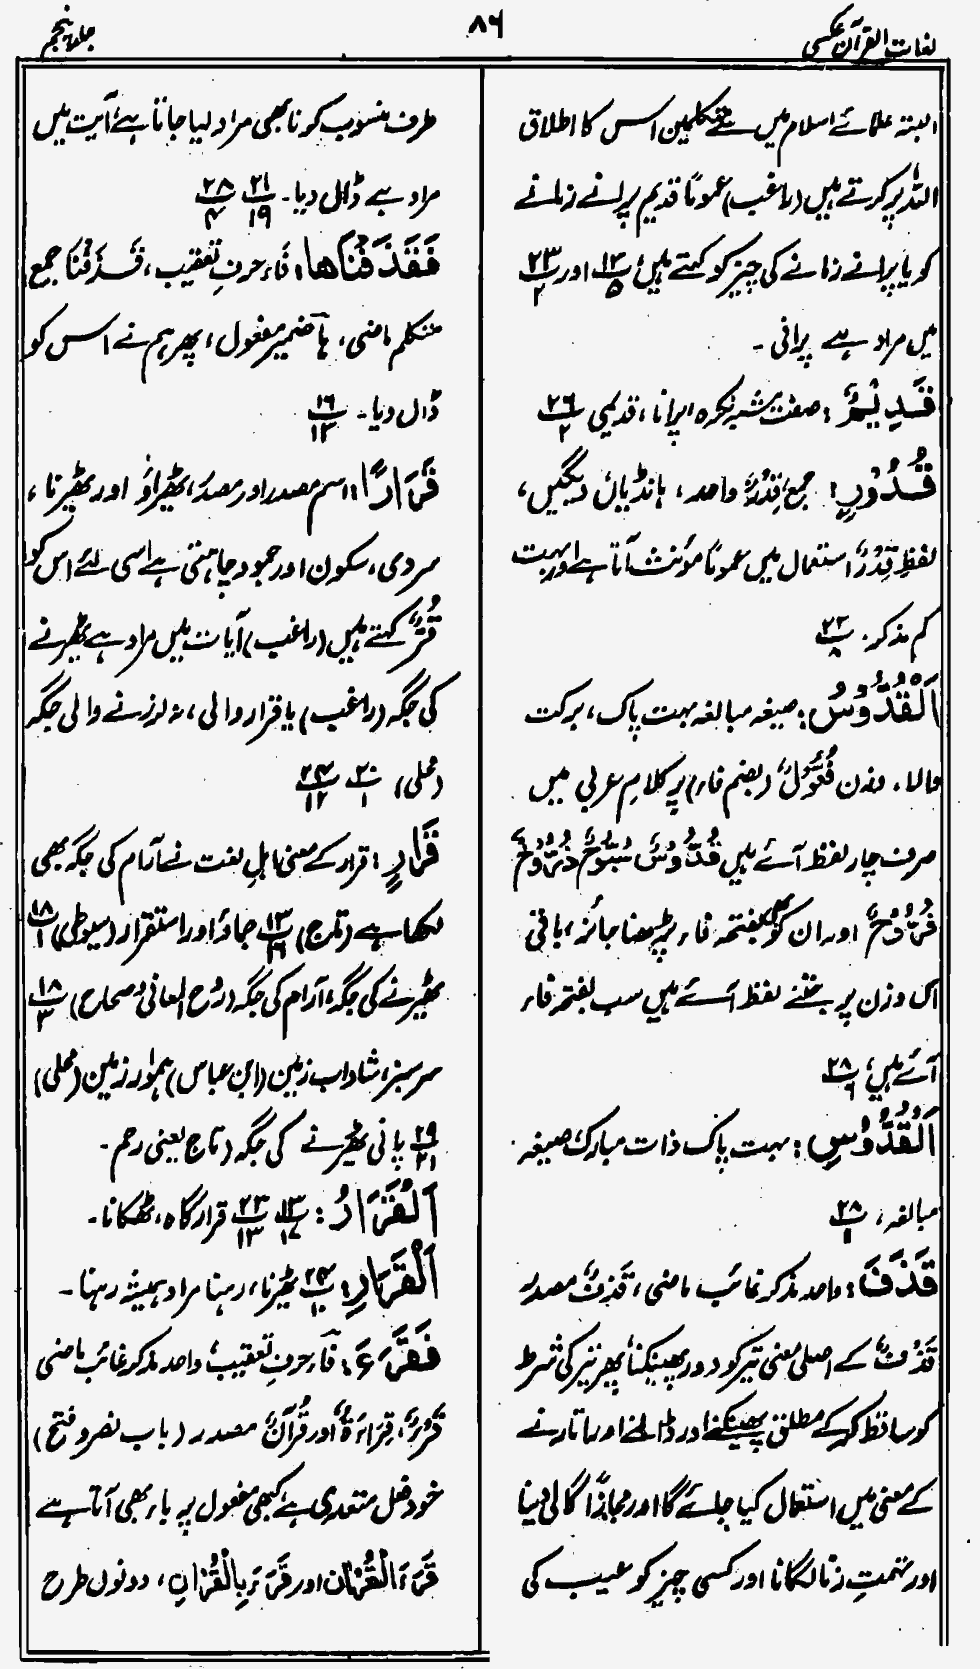 لغات القرآن عکسی
۸۶
جلد پنجم
البتہ علمائے اسلام میں سے متکلمین اس کا اطلاق
اللہ پر کرتے ہیں (راغب) عموماً قدیم پرانے زمانے
کو یا پرانے زمانے کی چیز کو کہتے ہیں، ۱۳/۵ اور ۲۳/۲
میں مراد ہے پرانی۔
قَدِیْمٌ: صفت مشبہ نکرہ، پرانا، قدیمی ۲۶/۲
قُدُوْرٍ: جمع، قِدْرٌ واحد، ہانڈیاں دیگیں،
لفظ قِدْرٌ استعمال میں عموماً مؤنث آتا ہے اور بہت
کم مذکر۔ ۲۲/۸
اَلْقُدُّوْسُ: صیغہ مبالغہ بہت پاک، برکت
والا۔ وزن فُعُّوْلٌ (بضم فاء) پر کلام عربی میں
صرف چار لفظ آئے ہیں قُدُّوْسٌ سُبُّوْحٌ ذُرُّوْحٌ
فُرُّوْخٌ اور ان کو بھی بفتحہ فاء پڑھنا جائز، باقی
اس وزن پر جتنے لفظ آئے ہیں سب بفتحہ فاء
آئے ہیں، ۲۸/۶
اَلْقُدُّوْسِ: بہت پاک ذات مبارک، صیغہ
مبالغہ، ۲۸/۱
قَذَفَ: واحد مذکر غائب ماضی، قَذْفٌ مصدر
قَذْفٌ کے اصلی معنی تیر کو دور پھینکنا پھر تیر کی شرط
کو ساقط کر کے مطلق پھینکنے اور ڈالنے اور اتارنے
کے معنی میں استعمال کیا جانے لگا اور مجازاً گالی دینا
اور تہمتِ زنا لگانا اور کسی چیز کو عیب کی
طرف منسوب کرنا بھی مراد لیا جاتا ہے، آیت میں
مراد ہے ڈال دیا۔ ۲۱/۱۹ ۲۸/۴
فَقَذَفْنَاھَا: فاء حرفِ تعقیب، قَذَفْنَا جمع
متکلم ماضی، ہَا ضمیر مفعول، پھر ہم نے اس کو
ڈال دیا۔ ۱۶/۱۳
قَرَارًا: اسم مصدر اور مصدر، ٹھیراؤ اور ٹھیرنا،
سردی، سکون اور جمود چاہتی ہے اسی لئے اس کو
قُرٌّ کہتے ہیں (راغب) آیات میں مراد ہے ٹھیرنے
کی جگہ (راغب) یا قرار والی، نہ لرزنے والی جگہ
(محلی) ۲۰/۱ ۲۴/۱۲
قَرَارٍ: قرار کے معنی اہلِ لغت نے آرام کی جگہ بھی
لکھا ہے (تاج) ۱۳/۱۶ جماؤ اور استقرار (سیوطی) ۱۸/۱
ٹھیرنے کی جگہ، آرام کی جگہ (روح المعانی و صحاح) ۱۸/۳
سرسبز، شاداب زمین (ابن عباس) ہموار زمین (محلی)
۲۹/۲۱ پانی ٹھیرنے کی جگہ (تاج یعنی رحم۔
اَلْقَرَارُ: ۱۳/۱۷ ۲۳/۱۳ قرار گاہ، ٹھکانا۔
اَلْقَرَارِ: ۲۴/۱۰ ٹھیرنا، رہنا مراد ہمیشہ رہنا۔
فَقَرَءَ: فاَء حرفِ تعقیب، واحد مذکر غائب ماضی
قَرْءٌ، قِرَاءَۃٌ اور قُرْآنٌ مصدر (باب نصر و فتح)
خود فعل متعدی ہے، کبھی مفعول پر باء بھی آتا ہے
قَرَءَ الْقُرْاٰنَ اور قَرَءَ بِالْقُرْاٰنِ، دونوں طرح